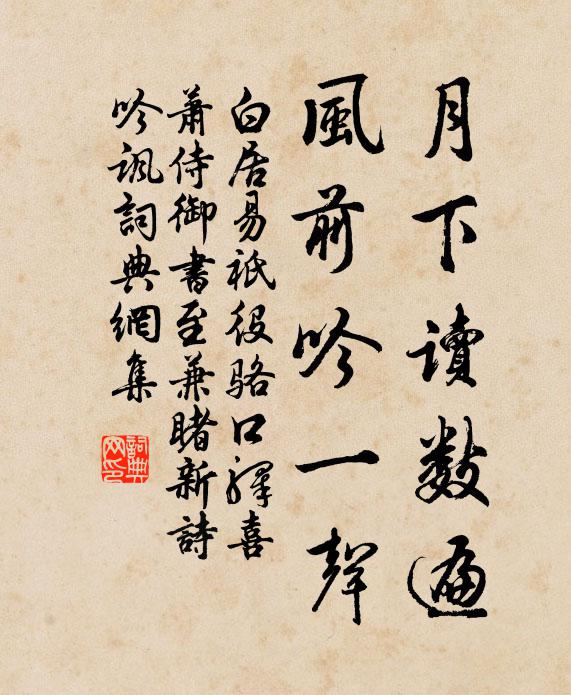 月下讀數遍
風前吟一聲
白居易祗役駱口驛喜
蕭侍御書至兼睹新詩
吟諷詞典網集
詞典网印